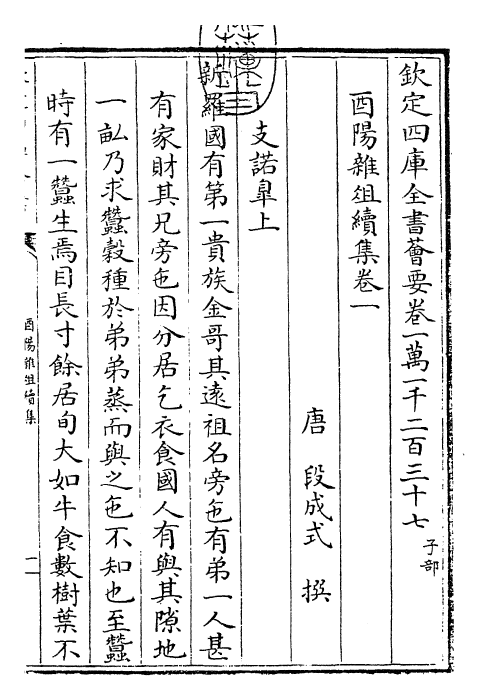 欽定四庫全書薈要卷一萬一千二百三十七 子部
酉陽雜俎續集卷一
唐 段成式 撰
支諾臯上
新羅國有第一貴族金哥其遠祖名旁㐌有弟一人甚
有家財其兄旁㐌因分居乞衣食國人有與其隙地
一畆乃求蠶穀種於弟弟蒸而與之㐌不知也至蠶
時有一蠶生焉目長寸餘居旬大如牛食數樹葉不
酉陽雜俎續集
一